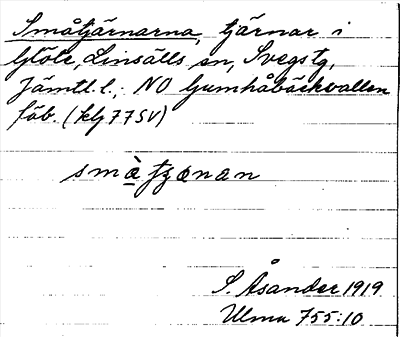 Småtjärnarna, tjärnar i
Glöte, Linsälls sn, Svegs tg,
Jämtl. l., NO Gumhåbäckvallen
fäb. (klj 77 SV)
smàtʒọnan
S. Åsander 1919
Ulma 755:10